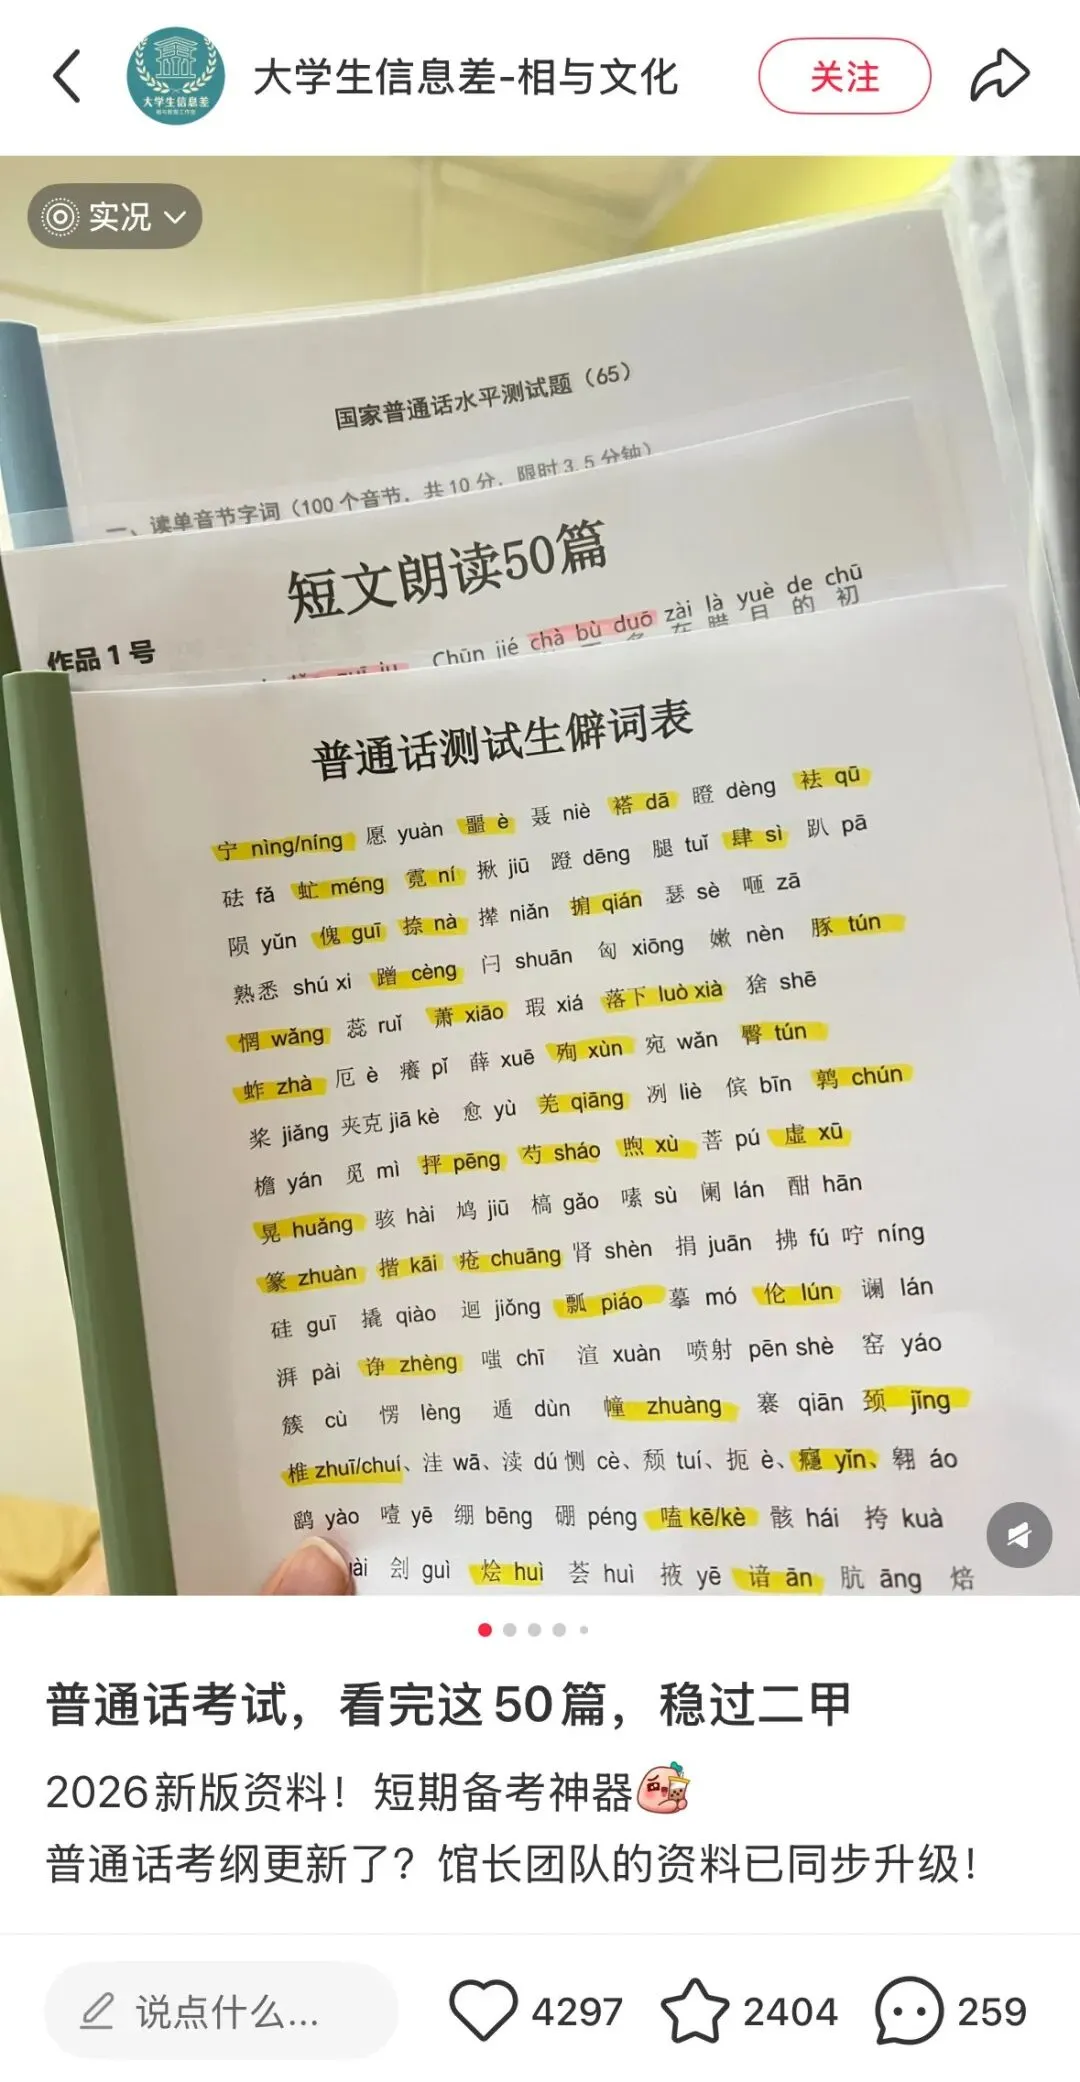 大学生信息差-相与文化
关注
大学生信息差
实况
国家普通话水平测试题（65）
一、读单音节字词（100个音节，共10分，限时3.5分钟）
短文朗读50篇
作品1号
Chūn jié chà bù duō zài là yuè de chū
普通话测试生僻词表
宁 nìng/níng 愿 yuàn 噩 è 聂 niè 褡 dā 瞪 dèng 祛 qū
砝 fǎ 虻 méng 霓 ní 揪 jiū 蹬 dēng 腿 tuǐ 肆 sì 趴 pā
陨 yǔn 傀 guī 捺 nà 撵 niǎn 掮 qián 瑟 sè 咂 zā
熟悉 shú xi 蹭 cèng 闩 shuān 匈 xiōng 嫩 nèn 豚 tún
惘 wǎng 蕊 ruǐ 萧 xiāo 瑕 xiá 落下 luò xià 猞 shē
蚱 zhà 厄 è 癖 pǐ 薛 xuē 殉 xùn 宛 wǎn 臀 tún
桨 jiǎng 夹克 jiā kè 愈 yù 羌 qiāng 冽 liè 傧 bīn 鹑 chún
檐 yán 觅 mì 抨 pēng 芍 sháo 煦 xù 菩 pú 虚 xū
晃 huǎng 骇 hài 鸠 jiū 槁 gǎo 嗉 sù 阑 lán 酣 hān
篆 zhuàn 揩 kāi 疮 chuāng 肾 shèn 捐 juān 拂 fú 咛 níng
硅 guī 撬 qiào 迥 jiǒng 瓢 piáo 摹 mó 伦 lún 谰 lán
湃 pài 诤 zhèng 嗤 chī 渲 xuàn 喷射 pēn shè 窑 yáo
簇 cù 愣 lèng 遁 dùn 幢 zhuàng 骞 qiān 颈 jǐng
椎 zhuī/chuí、洼 wā、渎 dú 恻 cè、颓 tuí、扼 è、瘾 yǐn、翱 áo
鹞 yào 噎 yē 绷 bēng 硼 péng 嗑 kē/kè 骸 hái 挎 kuà
ài 刽 guì 烩 huì 荟 huì 掖 yē 谙 ān 肮 āng 焙
普通话考试，看完这50篇，稳过二甲
2026新版资料！短期备考神器
普通话考纲更新了？馆长团队的资料已同步升级！
说点什么...
4297
2404
259